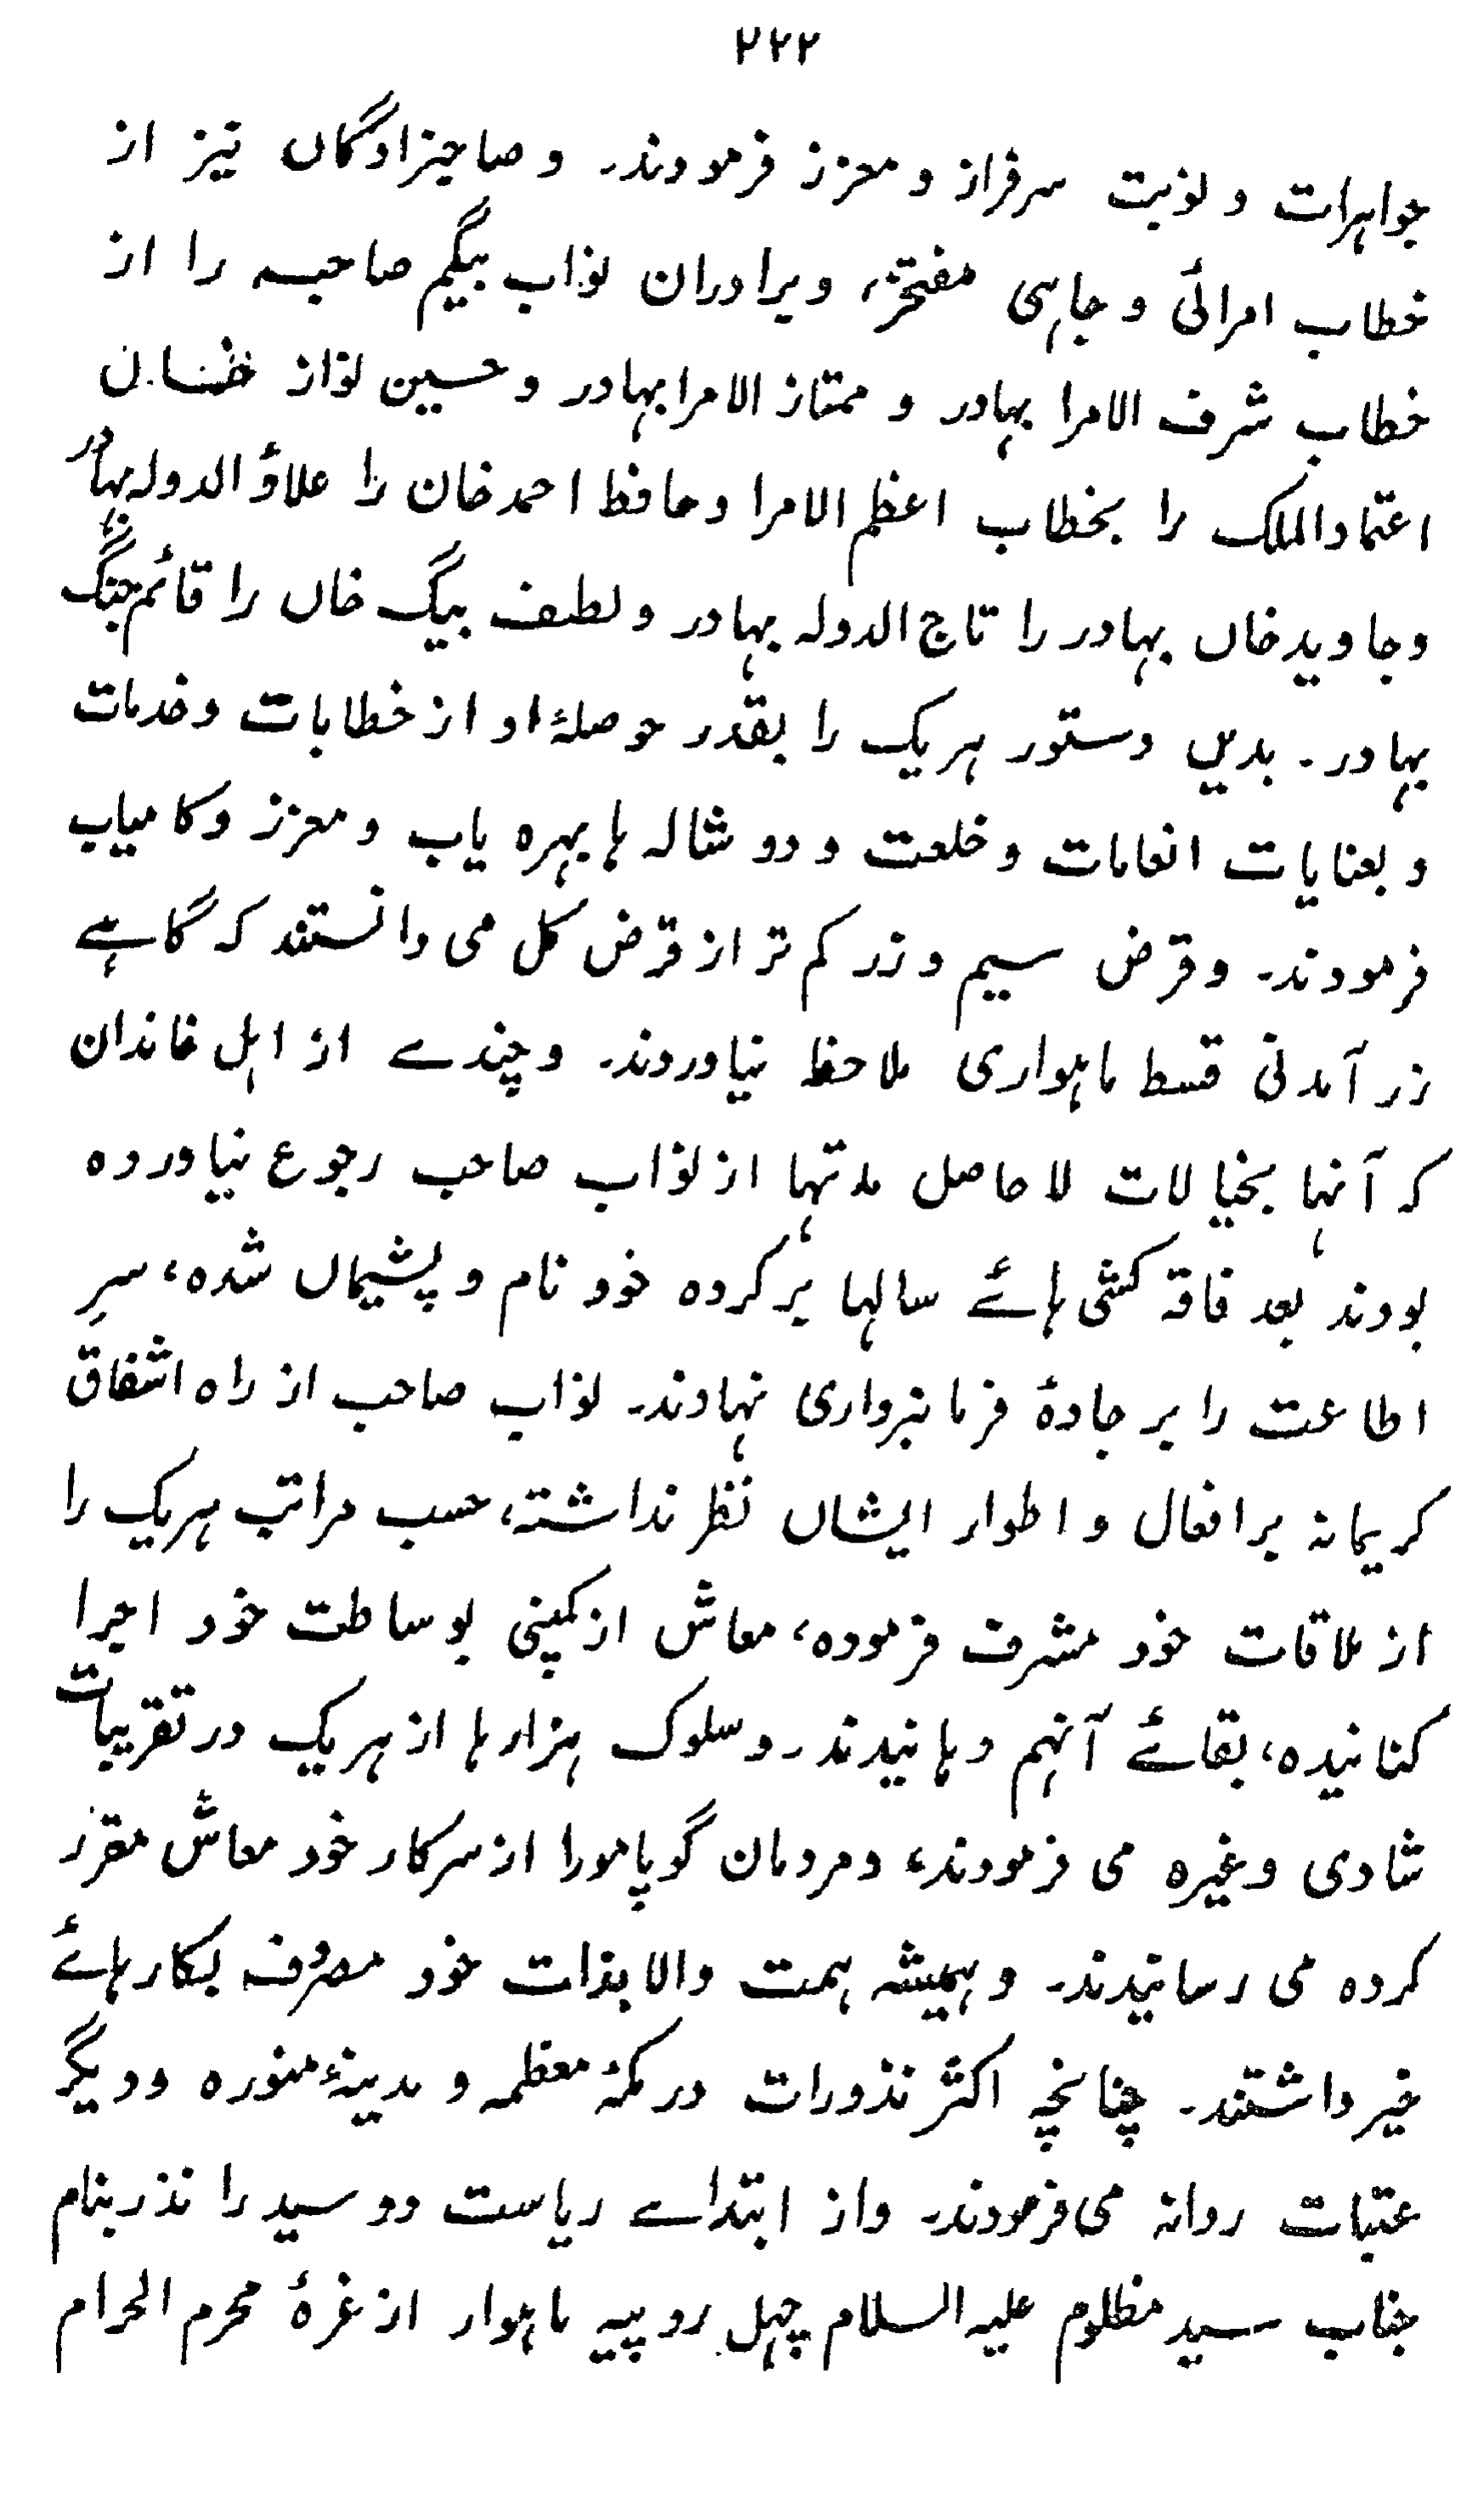 ۲۲۲
جواہرات و نوبت سرفراز و معزز فرمودند۔ و صاحبزادگاں نیز از
خطاب امرائی و جاہی مفتخر، و برادران نواب بیگم صاحبہ را از
خطاب شرف الامرا بہادر و ممتاز الامرا بہادر و حسین نواز خان
اعتماد الملک را بخطاب اعظم الامرا و حافظ احمد خان را علاؤ الدولہ بہادر
و جاوید خاں بہادر را تاج الدولہ بہادر و لطیف بیگ خاں را قائم جنگ
بہادر۔ بدیں دستور ہر یک را بقدر حوصلۂ او از خطابات و خدمات
و بعنایات انعامات و خلعت و دو شالہ ہا بہرہ یاب و معزز و کامیاب
فرمودند۔ و قرض سیم و زر کم تر از قرض کل می دانستند کہ گاہے
زر آمدنی قسط ماہواری ملاحظہ نیاوردند۔ و چندے از اہل خاندان
کہ آنہا بخیالات لا حاصل مدتہا از نواب صاحب رجوع نیاوردہ
بودند بعد فاقہ کشی ہائے سالہا بر کردہ خود نام و پشیماں شدہ، سرِ
اطاعت را بر جادۂ فرمانبرداری نہادند۔ نواب صاحب از راہ اشفاق
کریمانہ بر افعال و اطوار ایشاں نظر نداشتہ، حسب مراتب ہر یک را
از ملاقات خود مشرف فرمودہ، معاش از کمپنی بوساطت خود اجرا
کنانیدہ، بقائے آنہم دہانیدند۔ و سلوک ہزارہا از ہر یک در تقریبات
شادی وغیرہ می فرمودند، و مردمان گوپامو را از سرکار خود معاش مقرر
کردہ می رسانیدند۔ و ہمیشہ ہمت والا بذات خود مصروف بکار ہائے
خیر داشتند۔ چنانچہ اکثر نذورات در مکۂ معظمہ و مدینۂ منورہ و دیگر
عتبات روانہ می فرمودند۔ و از ابتداے ریاست دو سید را نذر بنام
جناب سید مظلوم علیہ السلام چہل روپیہ ماہوار از غرۂ محرم الحرام